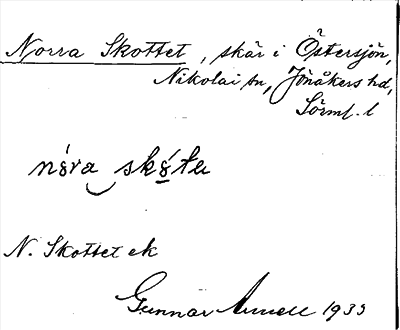 Norra Skottet, skär i Östersjön,
Nikolai sn, Jönåkers hd,
Sörml. l
nó̀ra skó̀te
N. Skottet ek
Gunnar Annell 1933